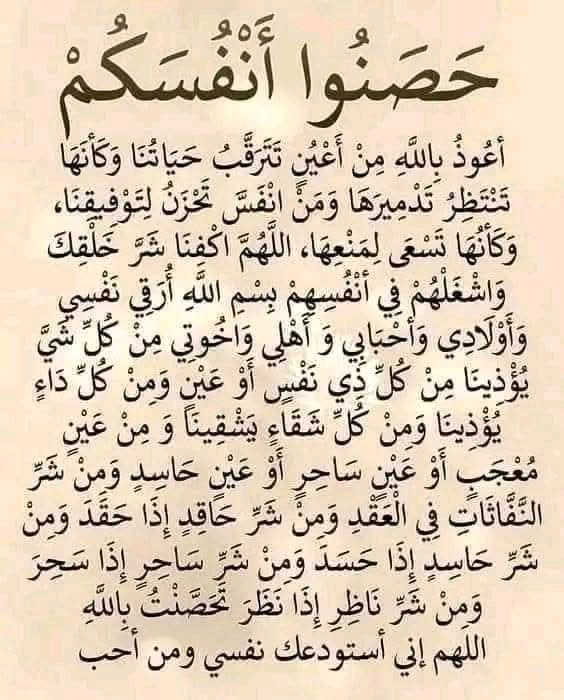 حَصَنُوا أَنْفُسَكُمْ
أعُوذُ بِاللَّهِ مِنْ أَعْيُنٍ تَتَرَقَّبُ حَيَاتُنَا وَكَأنَهَا
تَنْتَظِرُ تَدْمِيرَهَا وَمَنْ انْفَسَ تَحْزَنُ لِتَوْفِيقِنَا،
وَكَأنُهَا تَسْعَى لِمَنْعِهَا، اللَّهُمَّ اكْفِنَا شَرَّ خَلْقِكَ
وَاشْغَلْهُمْ فِي أنْفُسِهِمْ بِسْمِ اللَّهِ أُرَقِي نَفْسِي
وَأَوْلَادِي وَأحْبَابِي وَ أَهْلِي وَاخُوتِي مِنْ كُلِّ شَيَّ
يُؤْذِينَا مِنْ كُلِّ ذِي نَفْسٍ أَوْ عَيْنٍ وَمِنْ كُلِّ دَاءٍ
يُؤْذِينَا وَمِنْ كُلِّ شَقَاءٍ يَشْقِينَا وَ مِنْ عَيْنٍ
مُعْجَبٍ أَوْ عَيْنٍ سَاحِرٍ أَوْ عَيْنٍ حَاسِدٍ وَمِنْ شَرِّ
النَّفَّاثَاتِ فِي الْعَقْدِ وَمِنْ شَرِّ حَاقِدٍ إِذَا حَقَدَ وَمِنْ
شَرِّ حَاسِدٍ إِذَا حَسَدَ وَمِنْ شَرِّ سَاحِرٍ إِذَا سَحِرَ
وَمِنْ شَرِّ نَاظِرِ إِذَا نَظَرَ تَحَصَّنْتُ بِاللَّهِ
اللهم إني أستودعك نفسي ومن أحب